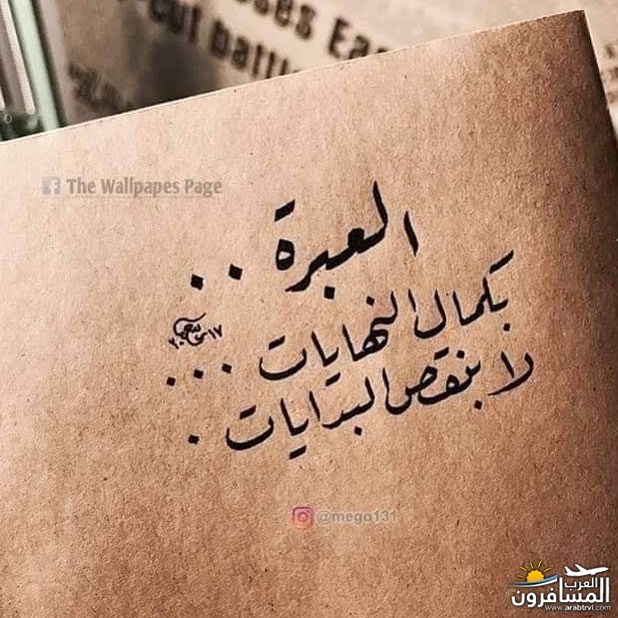 oses Eas
-cut battl
The Wallpapes Page
العبرة ..
بكمال النهايات ...
لا بنقص البدايات .
@mego131
العرب
المسافرون
www.arabtrvl.com